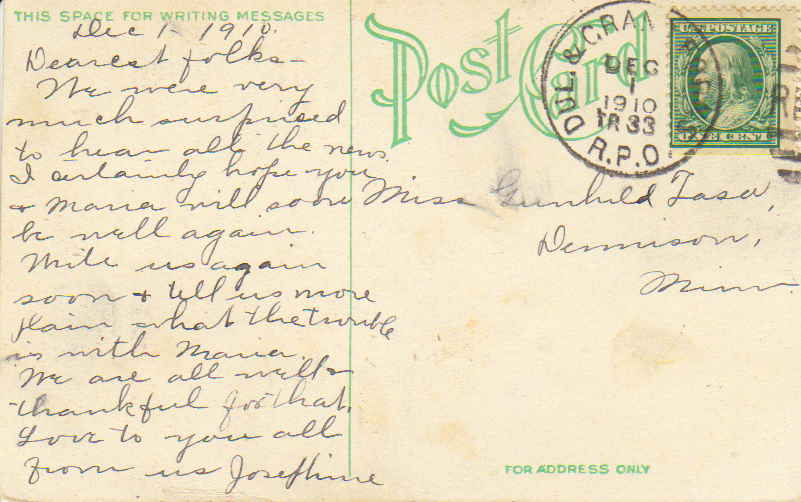 THIS SPACE FOR WRITING MESSAGES
Dec 1 1910.
Dearest folks—
We were very
much surprised
to hear all the news.
I certainly hope you
& Maria will soon
be well again.
Write us again
soon & tell us more
plain what the trouble
is with Maria.
We are all well &
thankful for that.
Love to you all
from us Josephine
Post Card
DUL. & GRAN
DEC
1
1910
TR 33
R.P.O.
U.S. POSTAGE
ONE CENT
Miss Gunhild Tasa,
Dennison,
Minn.
FOR ADDRESS ONLY